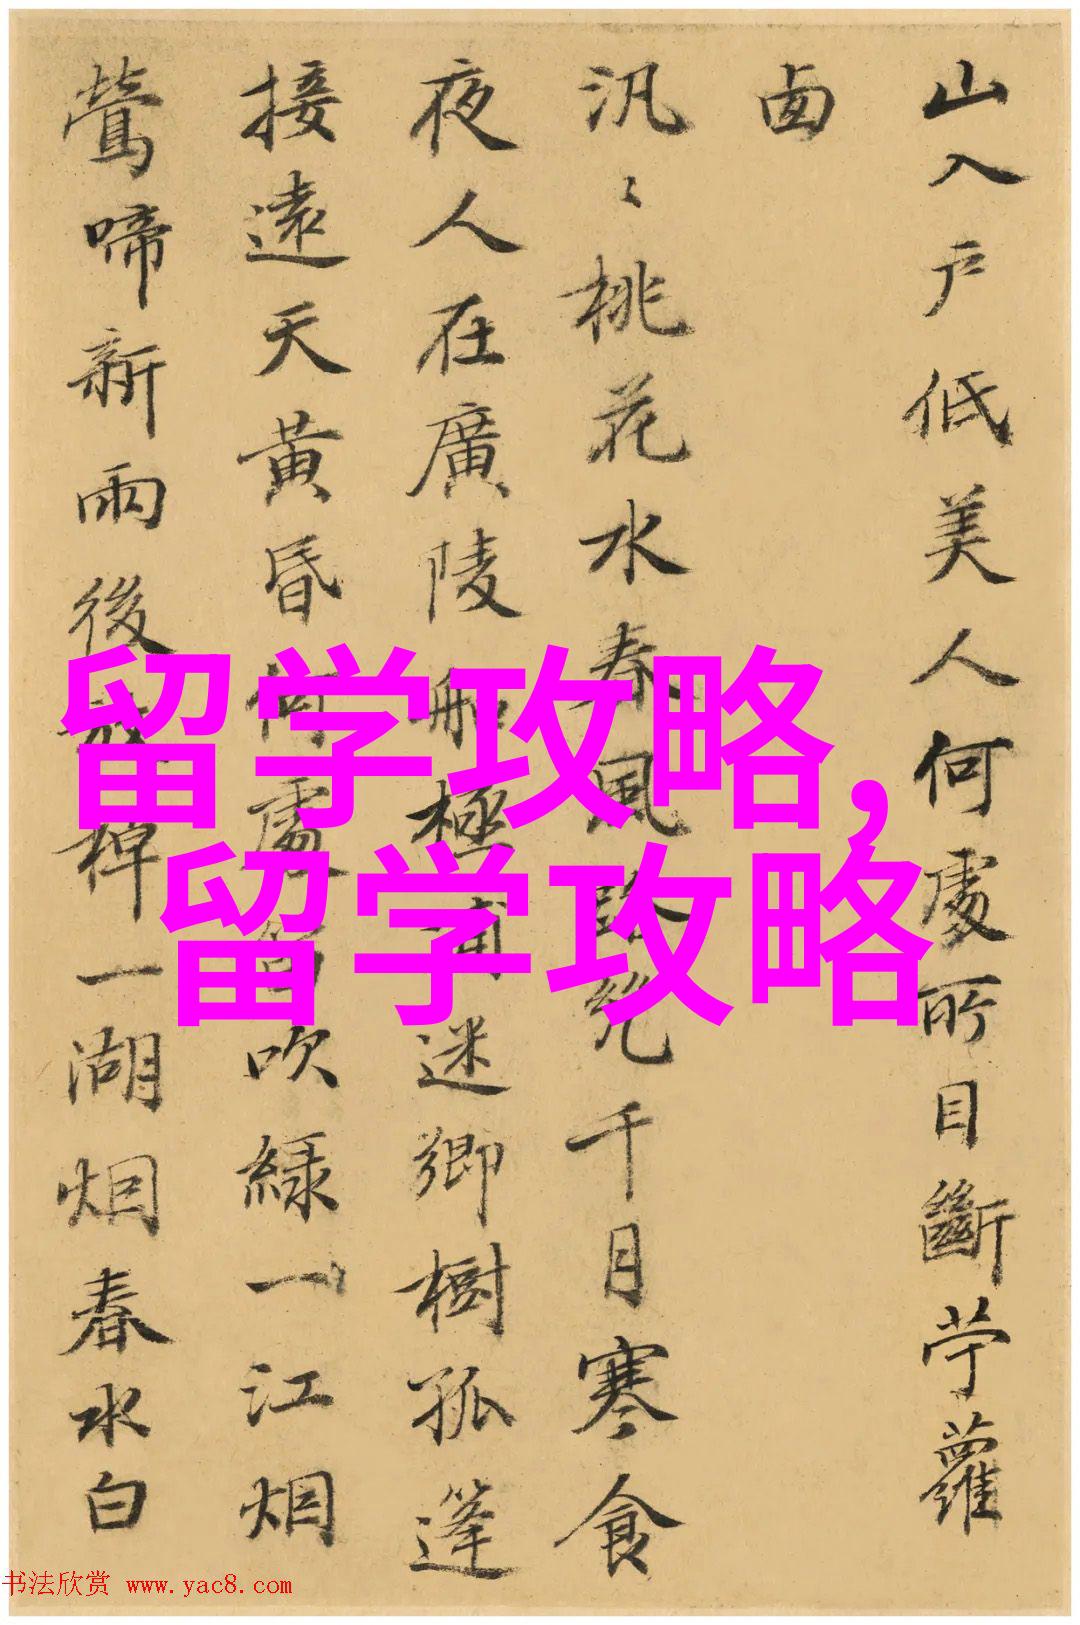 山入戶低美人何處所目斷苧蘿
卥
汎〻桃花水春風路千月寒食
夜人在廣陵船極浦迷鄉樹孤篷
接遠天黃昏何處吹綠一江烟
鶯啼新雨後放棹一湖烟春水白
留学攻略,
留学攻略
书法欣赏 www.yac8.com